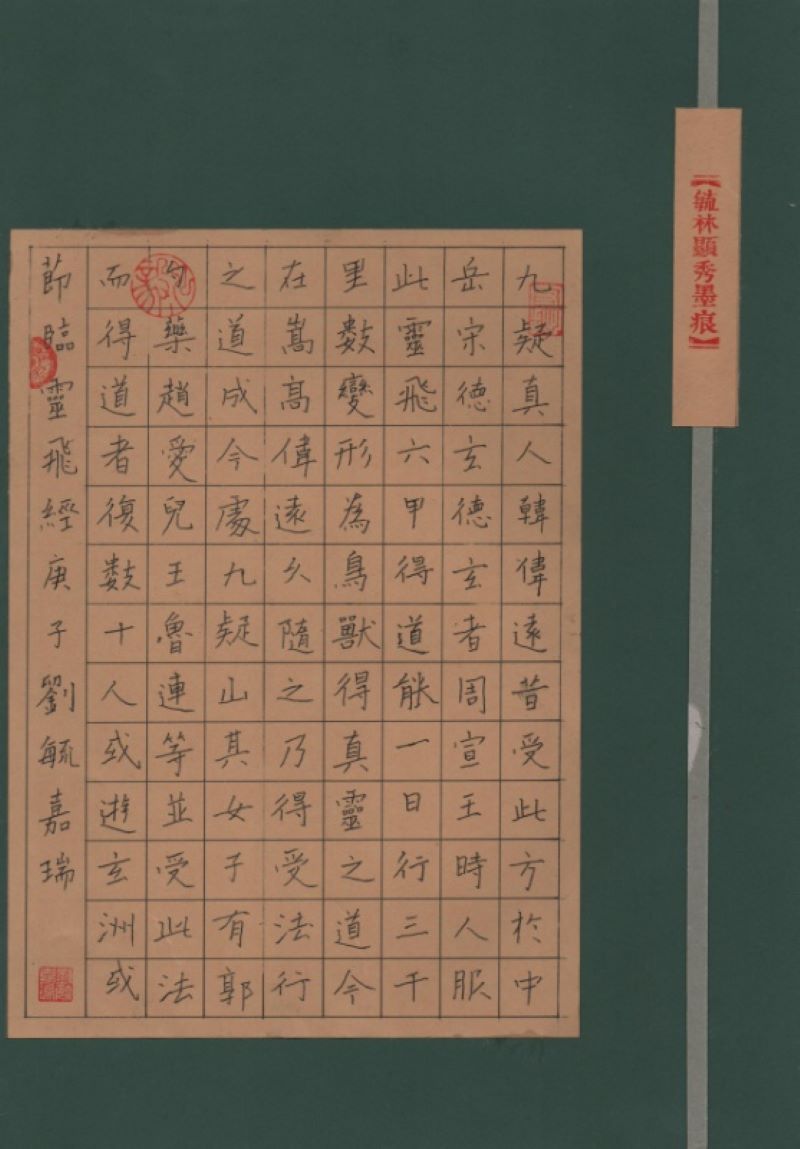 【毓林顯秀墨痕】
九疑真人韓偉遠昔受此方於中
岳宋德玄德玄者周宣王時人服
此靈飛六甲得道能一日行三千
里數變形為鳥獸得真靈之道今
在嵩高偉遠久隨之乃得受法行
之道成今處九疑山其女子有郭
勺藥趙愛兒王魯連等並受此法
而得道者復數十人或遊玄洲或
節臨靈飛經庚子劉毓嘉瑞